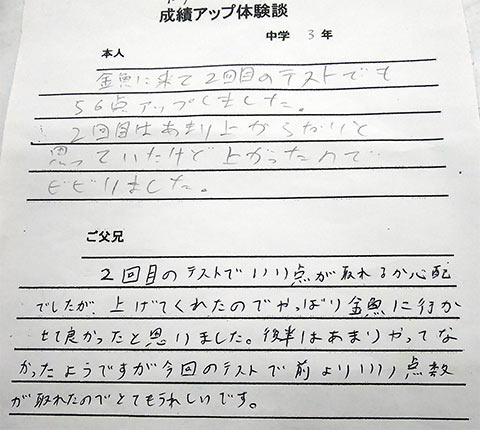 成績アップ体験談
中学 3 年
本人
金魚に来て2回目のテストでも
56点アップしました。
2回目はあまり上がらないと
思っていたけど上がったので
ビビりました。
ご父兄
2回目のテストでいい点が取れるか心配
でしたが、上げてくれたのでやっぱり金魚に行か
せて良かったと思いました。後半はあまりやってな
かったようですが今回のテストで前よりいい点数
が取れたのでとてもうれしいです。